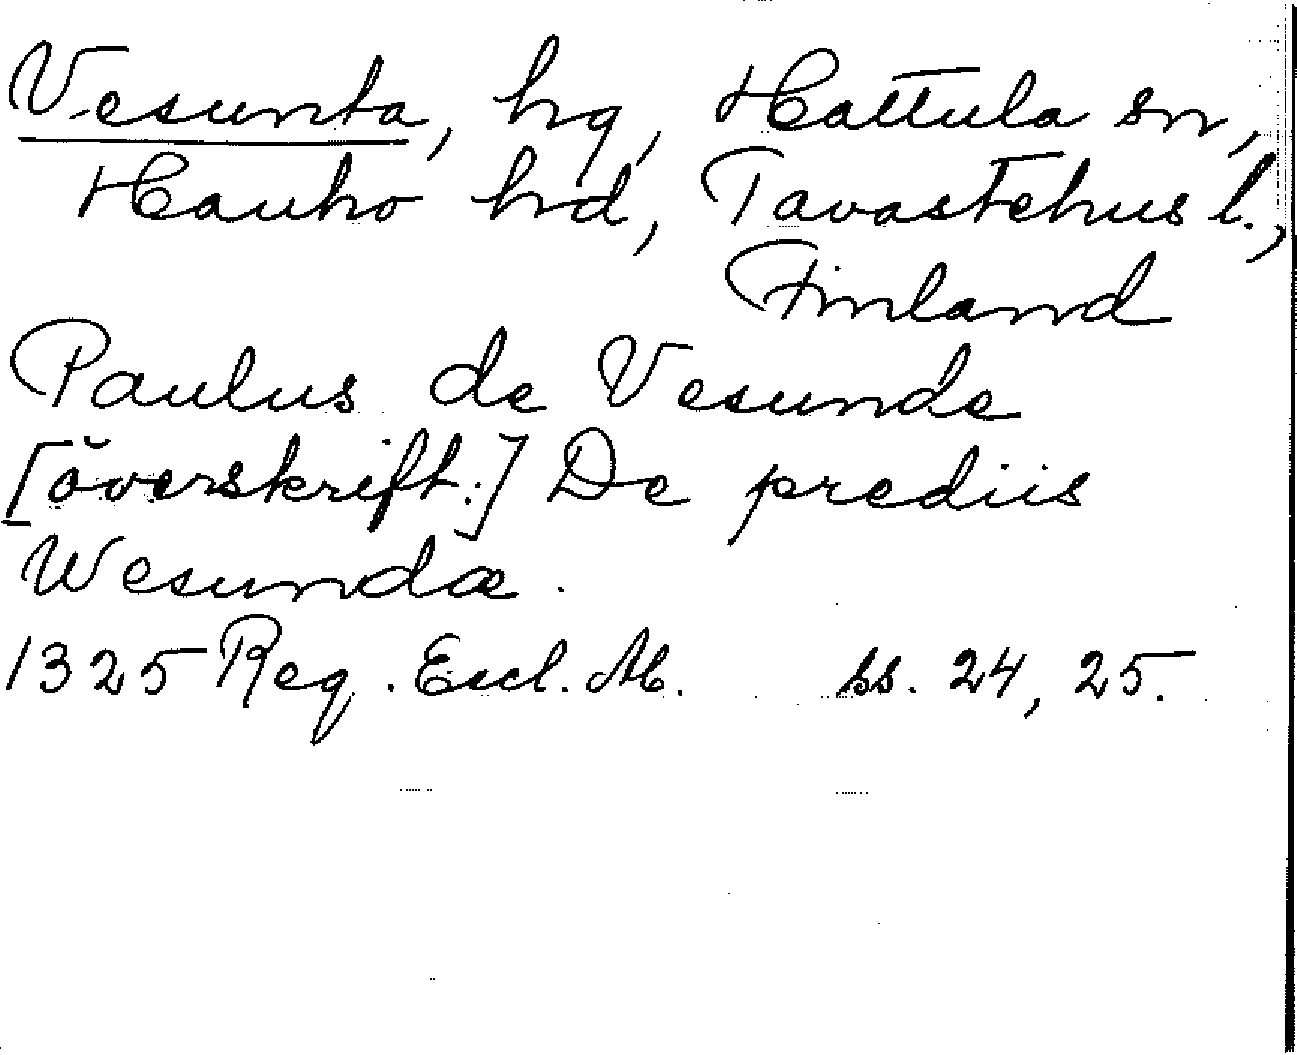 Vesunta, hg, Hattula sn,
Hauho hd, Tavastehus l.,
Finland
Paulus de Vesunde
[överskrift:] De prediis
Wesundæ.
1325 Reg. Eccl. Ab. ss. 24, 25.